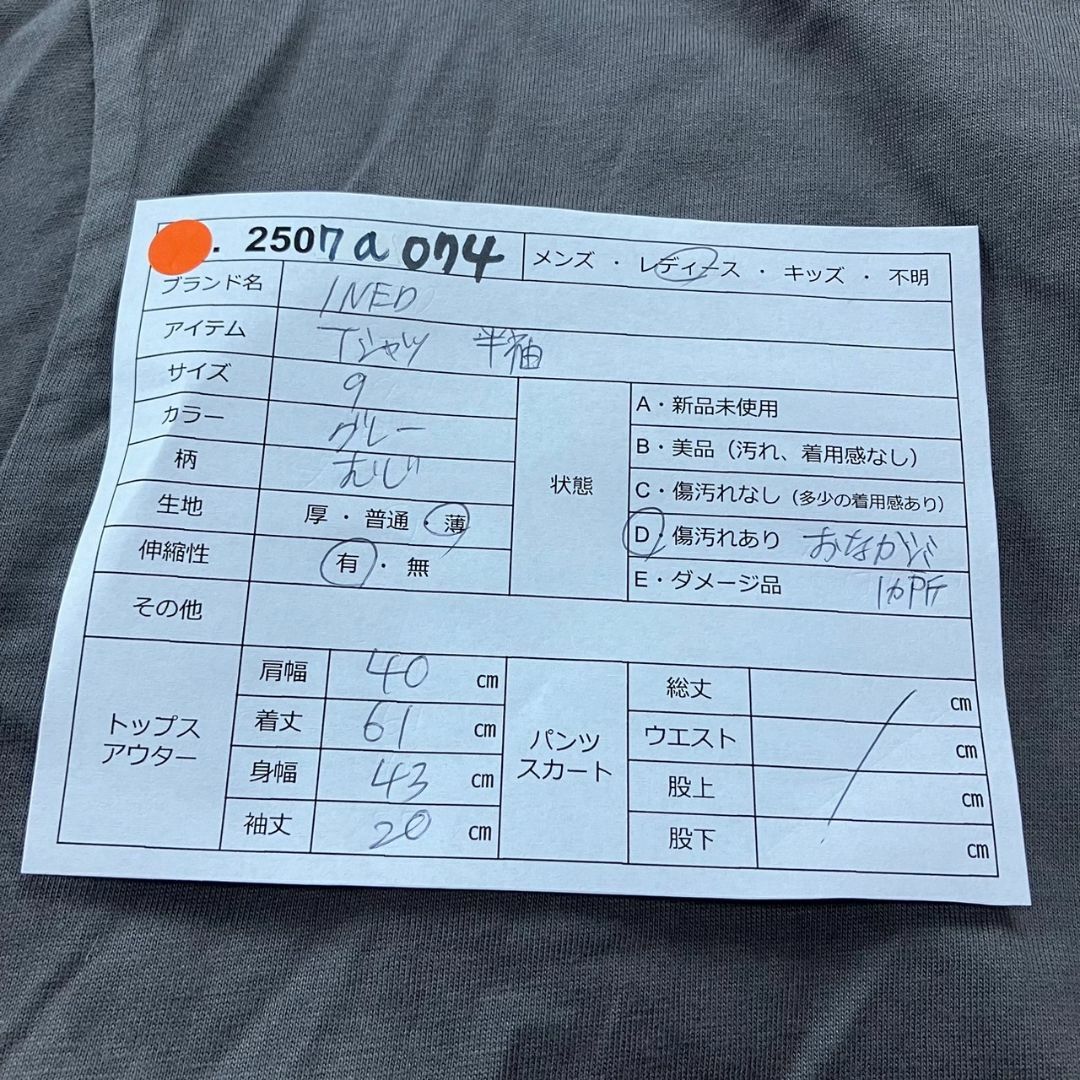 . 2507a074 メンズ ・ レディース ・ キッズ ・ 不明
ブランド名 INED
アイテム Tシャツ 半袖
サイズ 9
カラー グレー
柄 むじ
生地 厚 ・ 普通 ・ 薄
伸縮性 有 ・ 無
その他
状態
A・新品未使用
B・美品（汚れ、着用感なし）
C・傷汚れなし（多少の着用感あり）
D・傷汚れあり おなか
E・ダメージ品 1か所
トップス
アウター
肩幅 40 cm
着丈 61 cm
身幅 43 cm
袖丈 20 cm
パンツ
スカート
総丈 cm
ウエスト cm
股上 cm
股下 cm